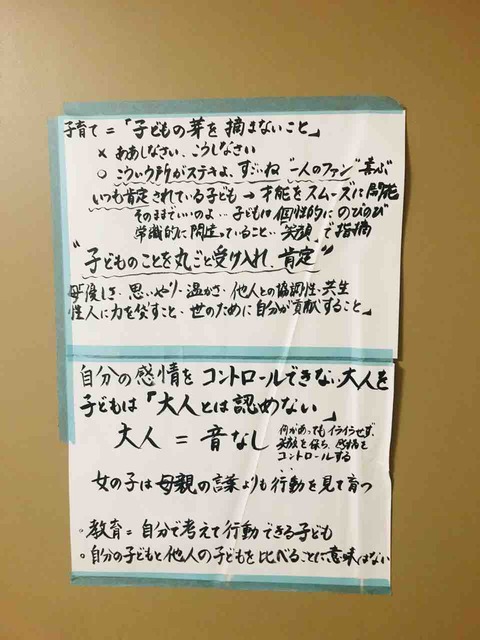 子育て=「子どもの芽を摘まないこと」
× ああしなさい、こうしなさい
○ こういう所がステキよ、すごいね "一人のファン" 喜ぶ
いつも肯定されている子ども → 才能をスムーズに開花
そのままでいいのよ‥子どもは個性的にのびのび
常識的に間違っていること‥笑顔で指摘
"子どものことを丸ごと受け入れ、肯定"
母「優しさ・思いやり・温かさ・他人との協調性・共生
性 人に力を貸すこと・世のために自分が貢献すること」
自分の感情をコントロールできない大人を
子どもは「大人とは認めない」
大人 = 音なし
何があってもイライラせず、
笑顔を保ち、感情を
コントロールする
女の子は母親の言葉よりも行動を見て育つ
○教育=自分で考えて行動できる子ども
○自分の子どもと他人の子どもを比べることに意味はない